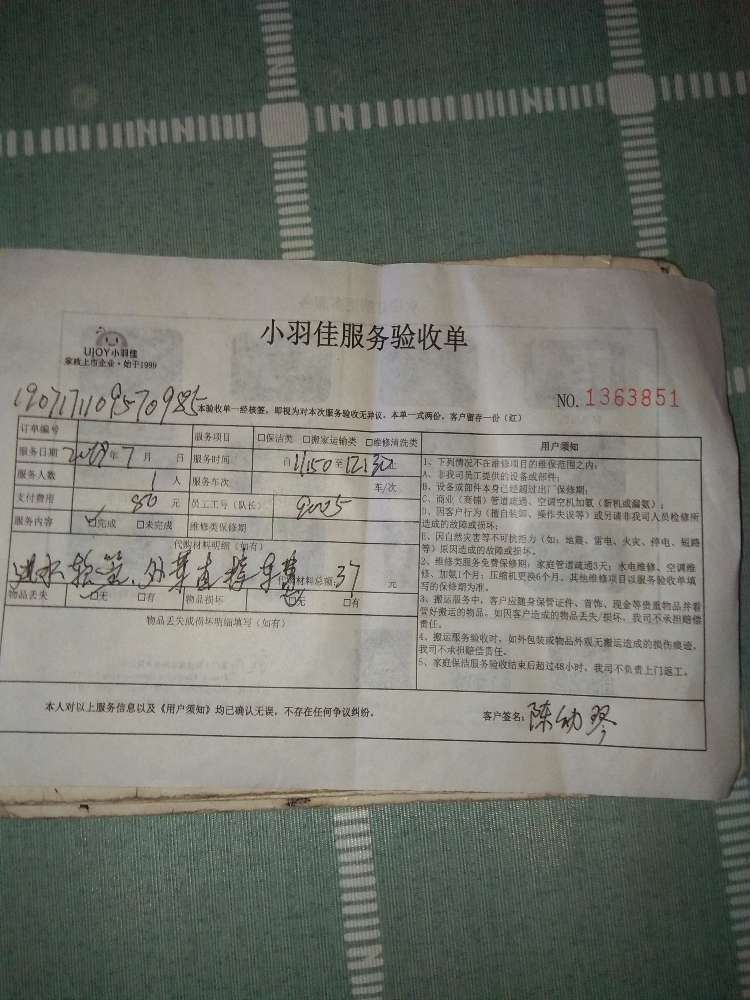 小羽佳服务验收单
UJOY小羽佳
家政上市企业·始于1999
NO. 1363851
本验收单一经核签，即视为对本次服务验收无异议。本单一式两份，客户留存一份（红）
订单编号 服务项目 □保洁类 □搬家运输类 □维修清洗类
服务日期 年7月 日 服务时间 自11:50至
服务人数 1 人 服务车次 车/次
支付费用 80 元 员工工号（队长） 9005
服务内容 □完成 □未完成 维修类保修期
代购材料明细（如有）
进水软 外 直接 代购材料总额：37 元
物品丢失 □无 □有 物品损坏 □无 □有
物品丢失或损坏明细填写（如有）
用户须知
1、下列情况不在维修项目的维保范围之内：
A、非我司员工提供的设备或部件；
B、设备或部件本身已经超过出厂保修期；
C、商业（商铺）管道疏通、空调空机加氨（新机或漏氨）；
D、因客户行为（擅自装卸、操作失误等）或另请非我司人员检修所
造成的故障或损坏；
E、因自然灾害等不可抗拒力（如：地震、雷电、火灾、停电、短路
等）原因造成的故障或损坏。
2、维修类服务免费保修期：家庭管道疏通3天；水电维修、空调维
修、加氨1个月；压缩机更换6个月，其他维修项目以服务验收单填
写的保修期为准。
3、搬运服务中，客户应随身保管证件、首饰、现金等贵重物品并看
管好搬运的物品。如因客户造成的物品丢失/损坏，我司不承担赔偿
责任。
4、搬运服务验收时，如外包装或物品外观无搬运造成的损伤痕迹，
我司不承担赔偿责任。
5、家庭保洁服务验收结束后超过48小时，我司不负责上门返工。
本人对以上服务信息以及《用户须知》均已确认无误，不存在任何争议纠纷。
客户签名：陈幼琴